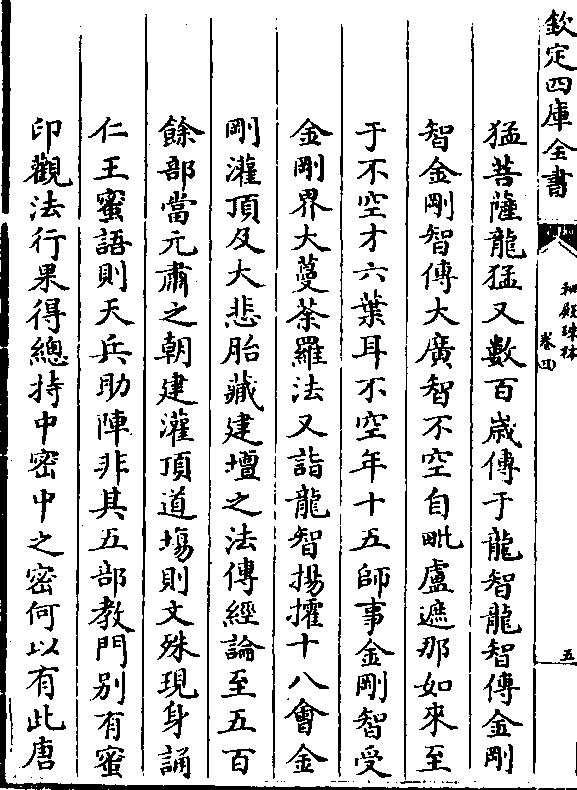 欽定四庫全書
秘殿珠林
卷四
五
猛菩薩龍猛又數百歲傳于龍智龍智傳金剛
智金剛智傳大廣智不空自毗盧遮那如來至
于不空才六葉耳不空年十五師事金剛智受
金剛界大蔓荼羅法又詣龍智揚擢十八會金
剛灌頂及大悲胎藏建壇之法傳經論至五百
餘部當元肅之朝建灌頂道場則文殊現身誦
仁王蜜語則天兵助陣非其五部教門别有蜜
印觀法行果得總持中密中之密何以有此唐